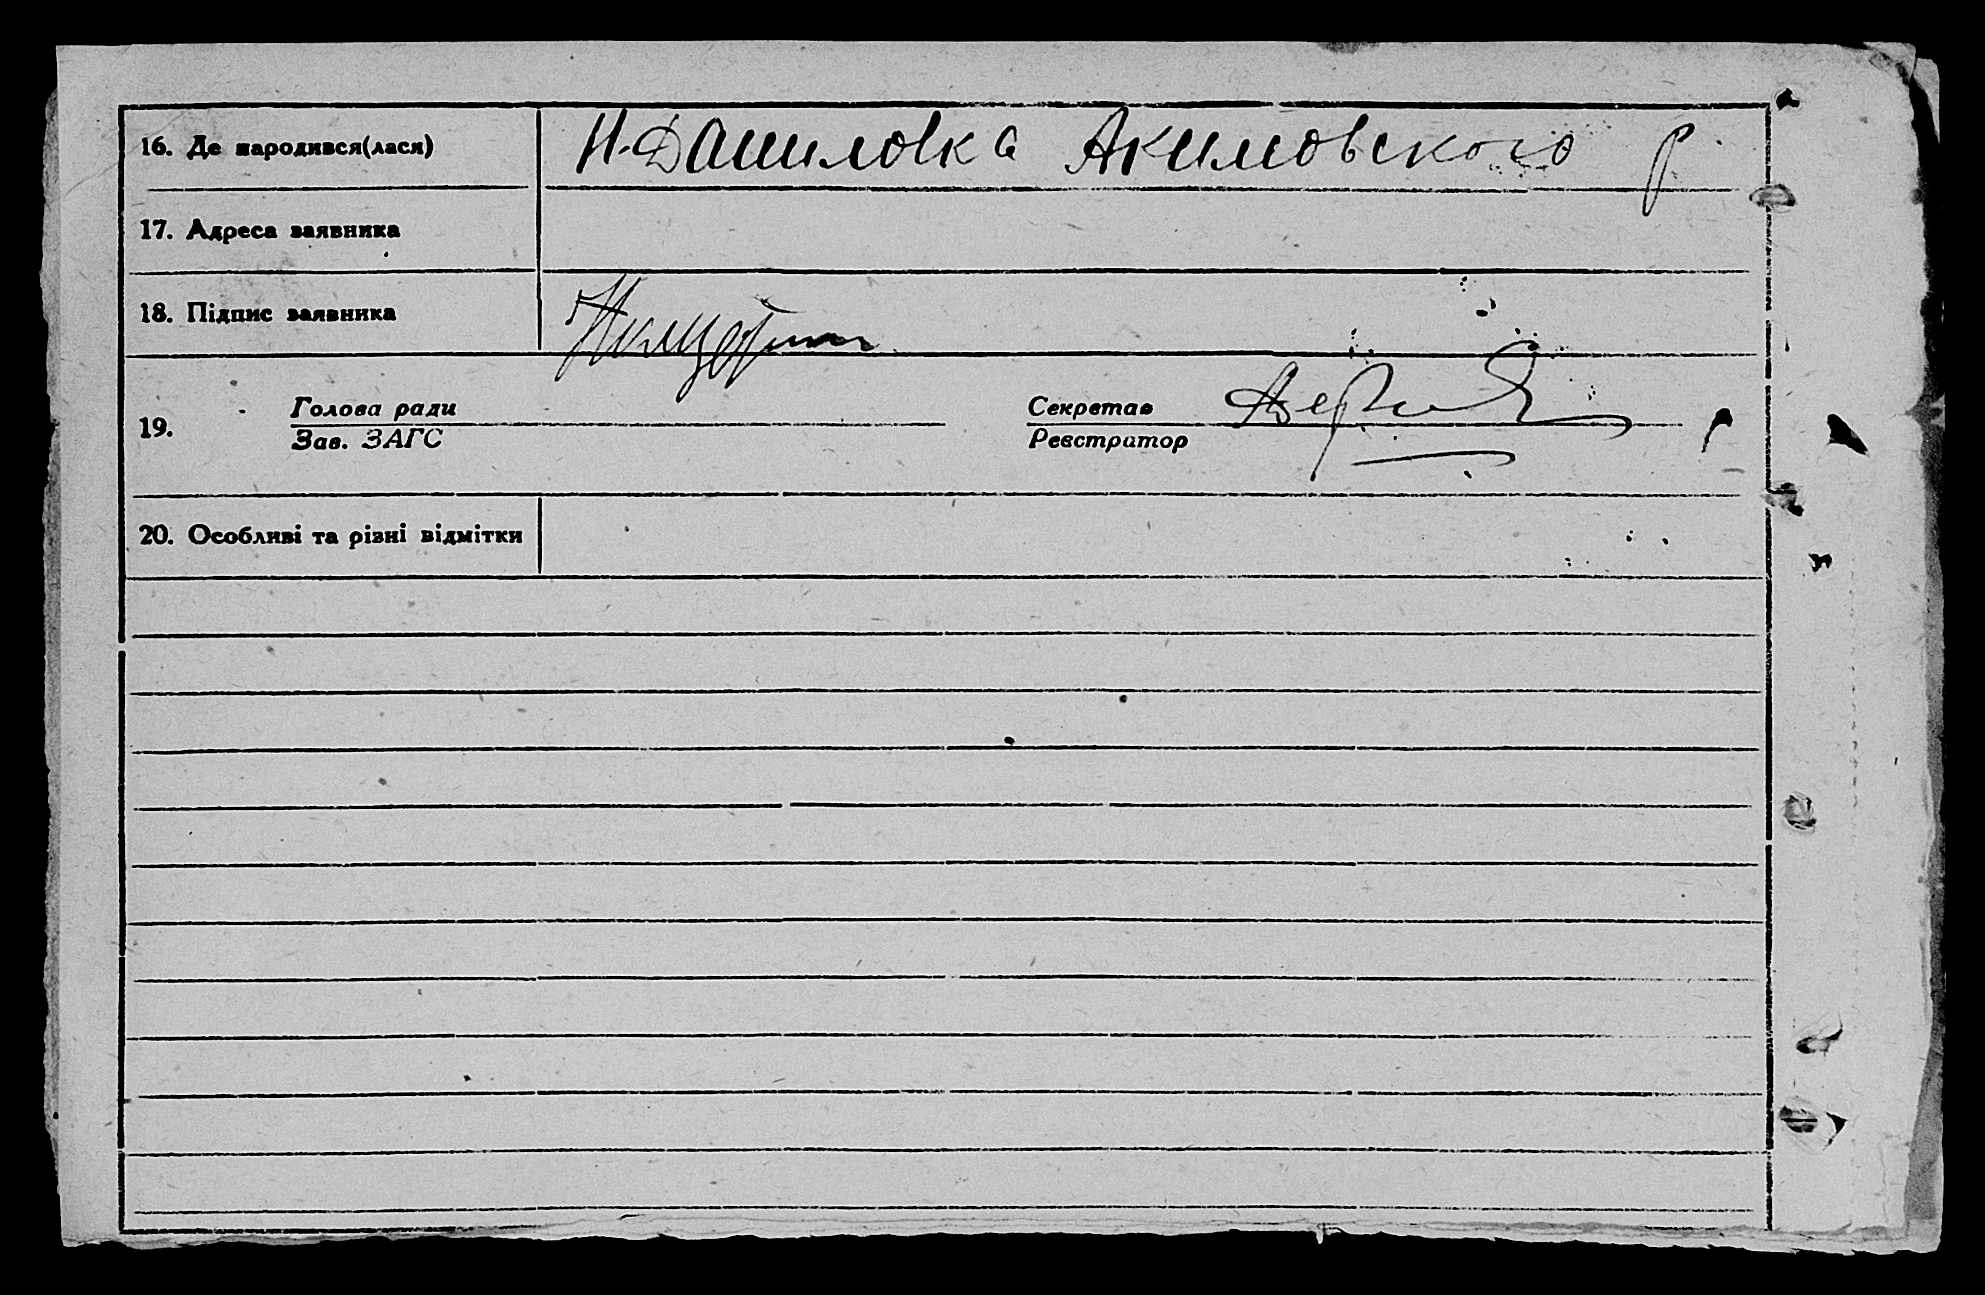 16. Де народився(лася) Н-Даниловка Акимовского р.
17. Адреса заявника
18. Підпис заявника
19. Голова ради Секретар
Зав. ЗАГС Реєстратор
20. Особливі та різні відмітки